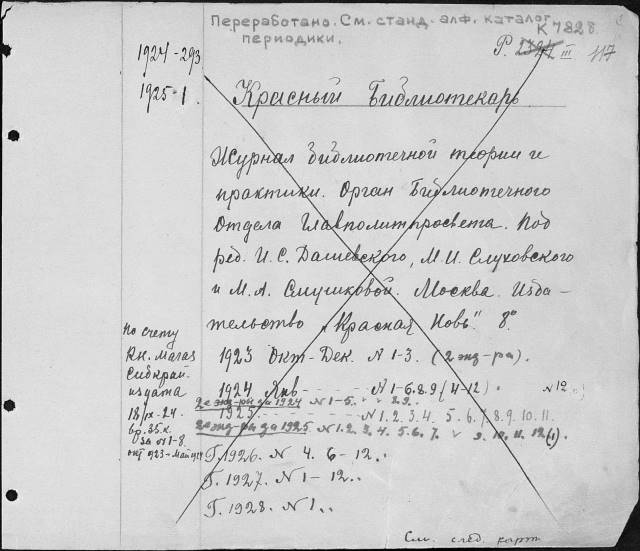 Переработано. См. станд. алф. каталог
периодики.
К 7828.
Р. 2394 III 117
1924-293
1925-1.
Красный Библиотекарь
Журнал библиотечной теории и
практики. Орган Библиотечного
Отдела Главполитпросвета. Под
ред. И. С. Дашевского, М. И. Слуховского
и М. А. Смушковой. Москва. Изда-
тельство „Красная Новь". 8°.
1923 Окт-Дек. N 1-3. (2 экз-ра).
1924 Янв - - - N 1-6.8.9 (4-12). N 12
2е экз-ры за 1924 N 1-5.
1925 - - - N 1. 2. 3. 4. 5. 6. 7. 8. 9. 10. 11.
2е экз-ры за 1925 N 1. 2. 3. 4. 5. 6. 7. 9. 10. 11. 12(1).
Г. 1926. N 4. 6-12..
Г. 1927. N 1-12..
Г. 1928. N 1..
По счету
Кн. Магаз
Сибкрай-
издата
18/IX-24.
6р. 35 к.
за N 1-8
окт 923-май 924
См. след. карт.